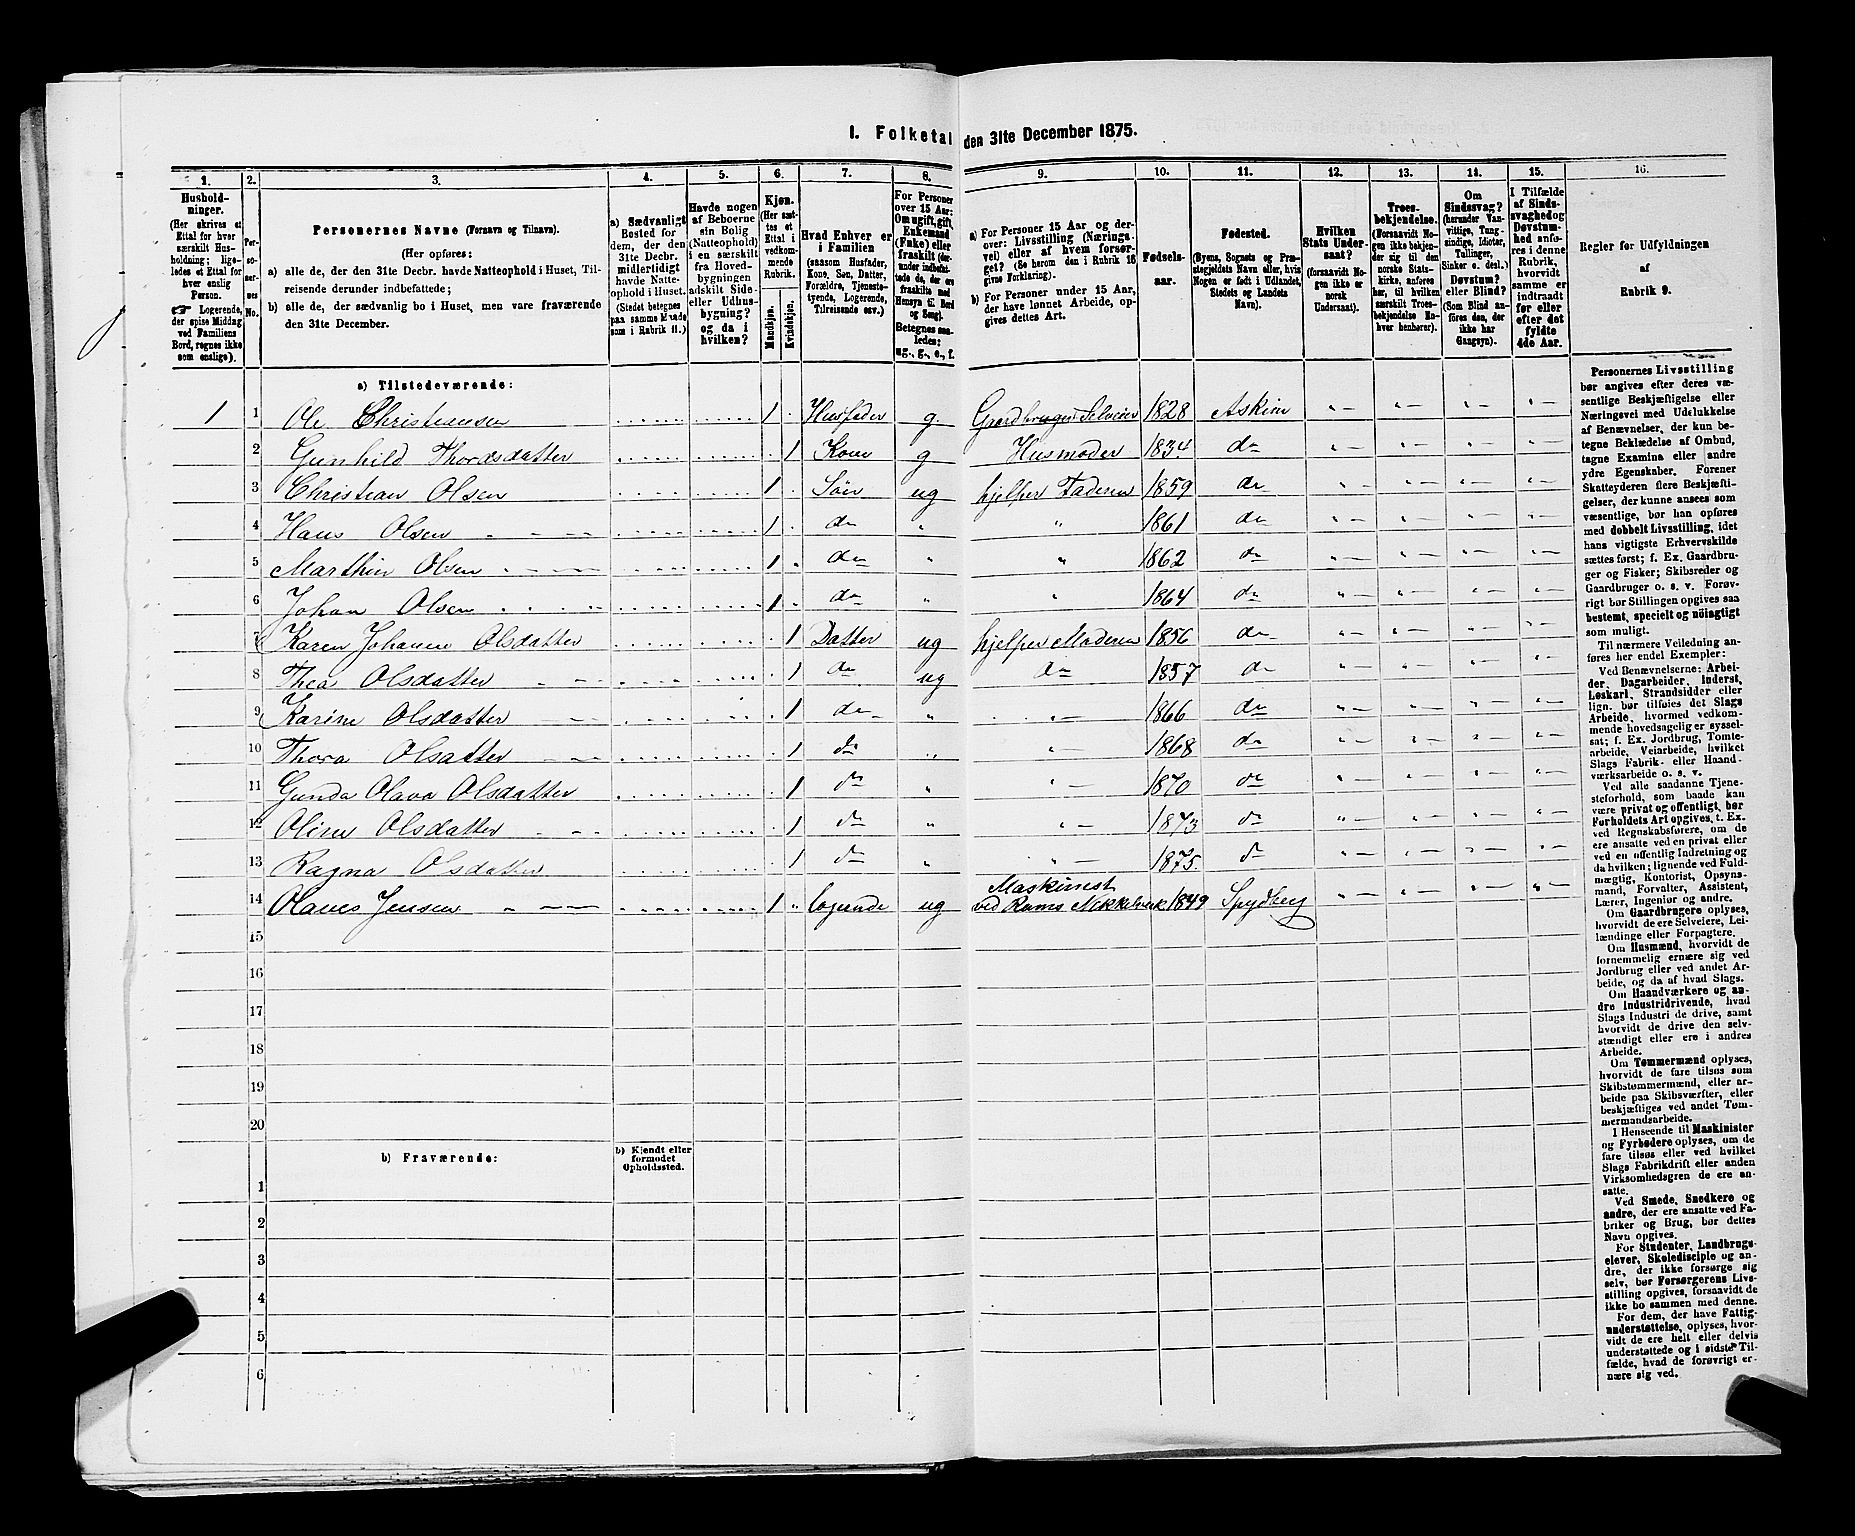 I. Folketal den 31te December 1875.
1. 2. 3. 4. 5. 6. 7. 8. 9. 10. 11. 12. 13. 14. 15. 16.
Hushold-
ninger.
(Her skrives et
Ettal for hver
særskilt Hus-
holdning; lige-
ledes et Ettal for
hver enslig
Person.
☞ Logerende,
der spise Middag
ved Familiens
Bord, regnes ikke
som enslige).
Per-
so-
ner-
nes
No.
Personernes Navne (Fornavn og Tilnavn).
(Her opføres:
a) alle de, der den 31te Decbr. havde Natteophold i Huset, Til-
reisende derunder indbefattede;
b) alle de, der sædvanlig bo i Huset, men vare fraværende
den 31te December.
a) Sædvanligt
Bosted for
dem, der den
31te Decbr.
midlertidigt
havde Natte-
ophold i Huset.
(Stedet betegnes
paa samme Maade
som i Rubrik 11.)
Havde nogen
af Beboerne
sin Bolig
(Natteophold)
i en særskilt
fra Hoved-
bygningen
adskilt Side-
eller Udhus-
bygning?
og da i
hvilken?
Kjøn.
(Her sæt-
tes et
Ettal i
vedkom-
mende
Rubrik.
Mandkjøn.
Kvindekjøn.
Hvad Enhver er
i Familien
(saasom Husfader,
Kone, Søn, Datter,
Forældre, Tjeneste-
tyende, Logerende,
Tilreisende osv.)
For Personer
over 15 Aar:
Om ugift, gift,
Enkemand
(Enke) eller
fraskilt (der-
under indbefat-
tede de, der ere
fraskilte med
Hensyn til Bord
og Seng).
Betegnes saa-
ledes:
ug., g., e., f.
a) For Personer 15 Aar og der-
over: Livsstilling (Nærings-
vei) eller af hvem forsør-
get? (Se herom den i Rubrik 16
givne Forklaring).
b) For Personer under 15 Aar,
der have lønnet Arbeide, op-
gives dettes Art.
Fødsels-
aar.
Fødested.
(Byens, Sognets og Præ-
stegjeldets Navn eller, hvis
Nogen er født i Udlandet,
Stedets og Landets
Navn).
Hvilken
Stats Under-
saat?
(forsaavidt No-
gen ikke er
norsk
Undersaat).
Troes-
bekjendelse.
(Forsaavidt No-
gen ikke bekjen-
der sig til den
norske Stats-
kirke, anføres
her, til hvilken
særskilt Troes-
bekjendelse En-
hver henhører).
Om
Sindssvag?
(herunder Van-
vittige, Tung-
sindige, Idioter,
Tullinger,
Sinker o. desl.)
Døvstum?
eller Blind?
(Som Blind an-
føres den, der
ikke har
Gangsyn).
I Tilfælde
af Sinds-
svaghed og
Døvstum-
hed anfø-
res i denne
Rubrik,
hvorvidt
samme er
indtraadt
før eller
efter det
fyldte
4de Aar.
Regler for Udfyldningen
af
Rubrik 9.
a) Tilstedeværende:
1 1 Ole Christiansen 1 Husfader g Gaardbruger Selveier 1828 Askim
2 Gunhild Thordsdatter 1 Kone g Husmoder 1834 do
3 Christian Olsen 1 Søn ug hjelper Faderen 1859 do
4 Hans Olsen 1 do " " 1861 do
5 Marthin Olsen 1 do " " 1862 do
6 Johan Olsen 1 do " " 1864 do
7 Karen Johanne Olsdatter 1 Datter ug hjelper Moderen 1856 do
8 Thea Olsdatter 1 do ug do 1857 do
9 Karine Olsdatter 1 do " " 1866 do
10 Thora Olsatter 1 do " " 1868 do
11 Gunda Olava Olsdatter 1 do " " 1870 do
12 Oline Olsdatter 1 do " " 1873 do
13 Ragna Olsdatter 1 do " " 1875. do
14 Olaves Jensen 1 " logerende ug Maskinist
ved 1849 Spydberg
15
16
17
18
19
20
b) Fraværende:
b) Kjendt eller
formodet
Opholdssted.
1
2
3
4
5
6
Personernes Livsstilling
bør angives efter deres væ-
sentlige Beskjæftigelse eller
Næringsvei med Udelukkelse
af Benævnelser, der kun be-
tegne Beklædelse af Ombud,
tagne Examina eller andre
ydre Egenskaber. Forener
Skatteyderen flere Beskjæfti-
gelser, der kunne ansees som
væsentlige, bør han opføres
med dobbelt Livsstilling, idet
hans vigtigste Erhvervskilde
sættes først; f. Ex. Gaardbru-
ger og Fisker; Skibsreder og
Gaardbruger o. s. v. Forøv-
rigt bør Stillingen opgives saa
bestemt, specielt og nøiagtigt
som muligt.
Til nærmere Veiledning an-
føres her endel Exempler:
Ved Benævnelserne: Arbei-
der, Dagarbeider, Inderst,
Løskarl, Strandsidder eller
lign. bør tilføies det Slags
Arbeide, hvormed vedkom-
mende hovedsagelig er syssel-
sat; f. Ex. Jordbrug, Tomte-
arbeide, Veiarbeide, hvilket
Slags Fabrik- eller Haand-
værksarbeide o. s. v.
Ved alle saadanne Tjene-
steforhold, som baade kan
være privat og offentligt, bør
Forholdets Art opgives, t. Ex.
ved Regnskabsførere, om de
ere ansatte ved en privat eller
ved en offentlig Indretning og
da hvilken; lignende ved Fuld-
mægtig, Kontorist, Opsyns-
mand, Forvalter, Assistent,
Lærer, Ingeniør og andre.
Om Gaardbrugere oplyses,
hvorvidt de ere Selveiere, Lei-
lændinge eller Forpagtere.
Om Husmænd, hvorvidt de
fornemmelig ernære sig ved
Jordbrug eller ved andet Ar-
beide, og da af hvad Slags.
Om Haandværkere og an-
dre Industridrivende, hvad
Slags Industri de drive, samt
hvorvidt de drive den selv-
stændigt eller ere i andres
Arbeide.
Om Tømmermænd oplyses,
hvorvidt de fare tilsøs som
Skibstømmermænd, eller ar-
beide paa Skibsværfter, eller
beskjæftiges ved andet Tøm-
mermandsarbeide.
I Henseende til Maskinister
og Fyrbødere oplyses, om de
fare tilsøs eller ved hvilket
Slags Fabrikdrift eller anden
Virksomhedsgren de ere an-
satte.
Ved Smede, Snedkere og
andre, der ere ansatte ved Fa-
briker og Brug, bør dettes
Navn opgives.
For Studenter, Landbrugs-
elever, Skoledisciple og an-
dre, der ikke forsørge sig
selv, bør Forsørgerens Livs-
stilling opgives, forsaavidt de
ikke bo sammen med denne.
For dem, der have Fattig-
understøttelse, oplyses, hvor-
vidt de ere helt eller delvis
understøttede og i sidste Til-
fælde, hvad de forøvrigt er-
nære sig ved.